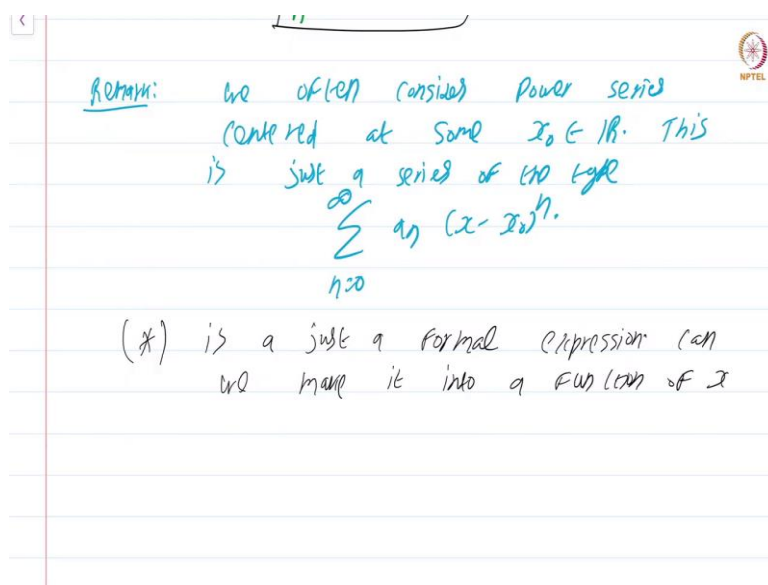 NPTEL
Remark: we often consider power series
centered at some x₀ ∈ ℝ. This
is just a series of the type
∞
∑ aₙ (x - x₀)ⁿ.
n=0
(*) is a just a formal expression can
we make it into a function of x